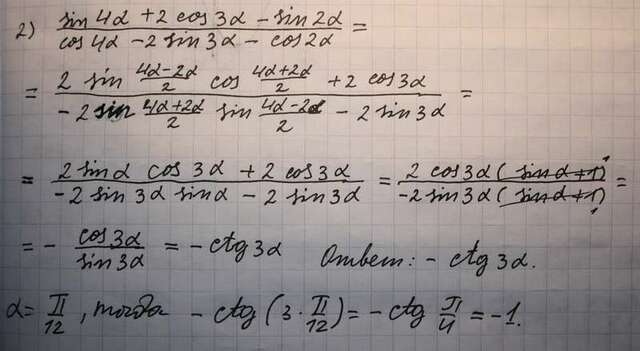 2) (sin 4α + 2 cos 3α − sin 2α)/(cos 4α − 2 sin 3α − cos 2α) =
= (2 sin (4α−2α)/2 cos (4α+2α)/2 + 2 cos 3α)/(−2 sin (4α+2α)/2 sin (4α−2α)/2 − 2 sin 3α) =
= (2 sin α cos 3α + 2 cos 3α)/(−2 sin 3α sin α − 2 sin 3α) = (2 cos 3α (sin α + 1))/(−2 sin 3α (sin α + 1)) =
= − cos 3α/sin 3α = − ctg 3α Ответ: − ctg 3α.
α = π/12, тогда − ctg (3 · π/12) = − ctg π/4 = −1.